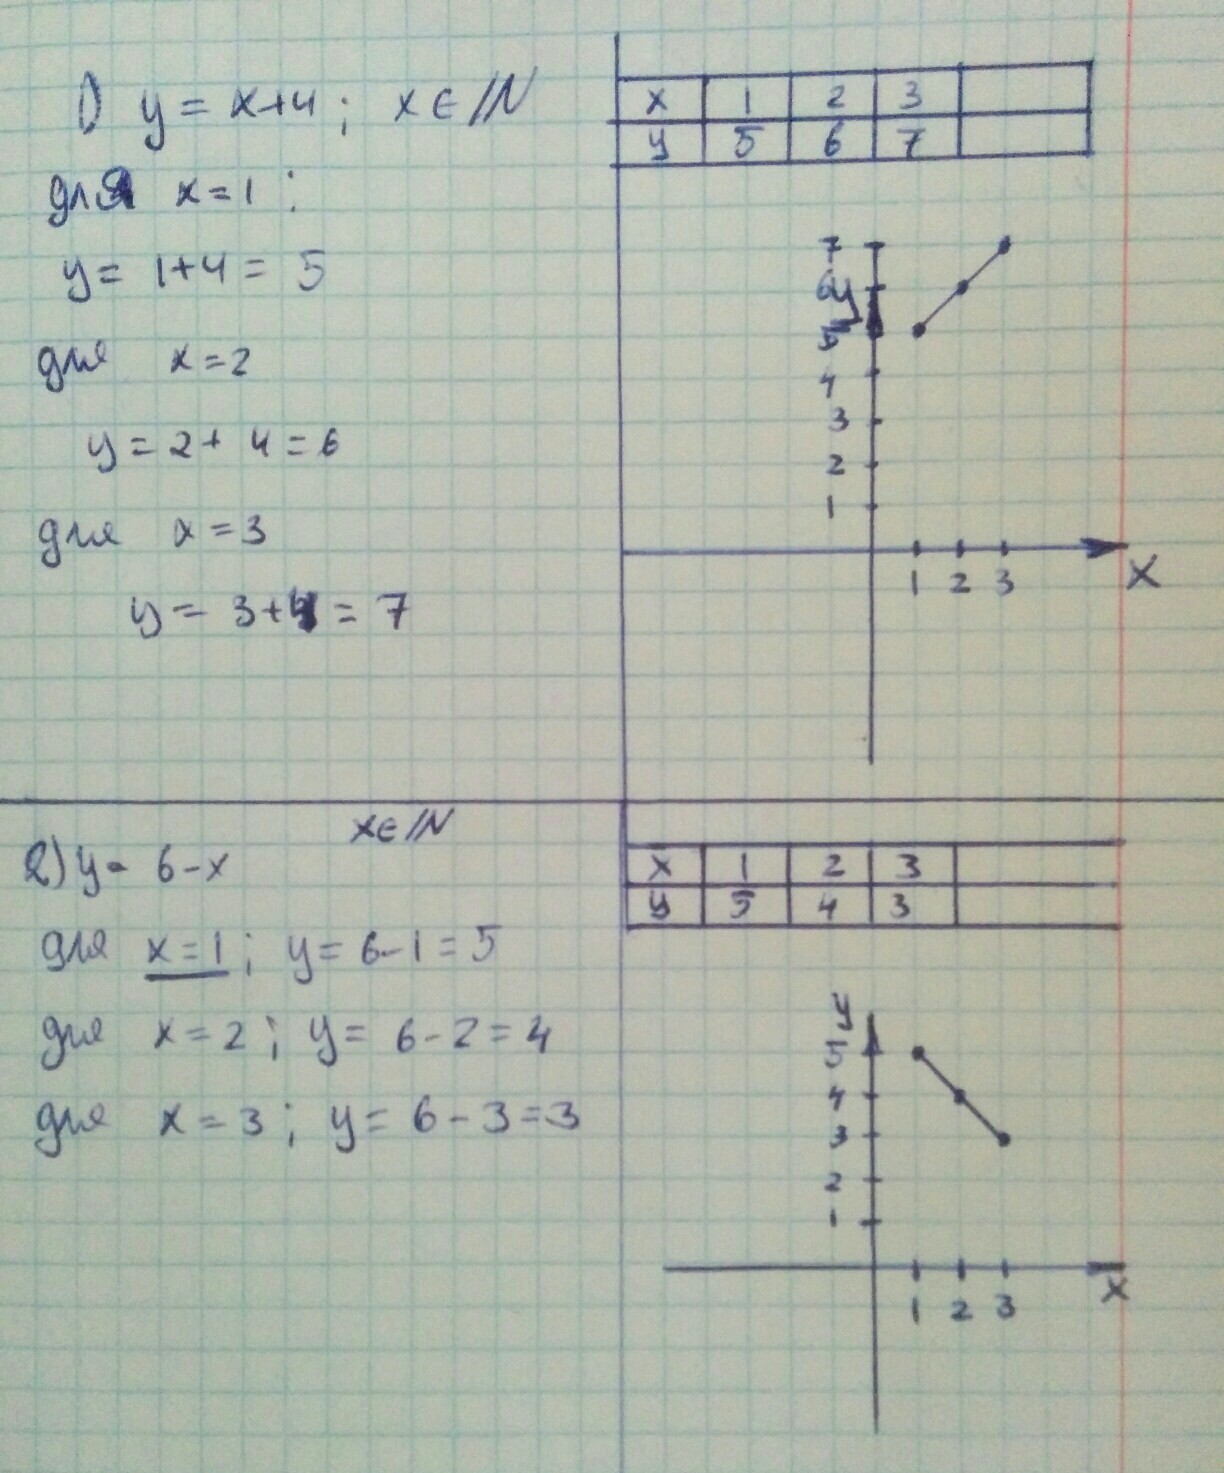 1) y = x+4 ; x ∈ N
для x=1 :
y= 1+4 = 5
для x=2
y = 2+ 4 = 6
для x = 3
y = 3+4 = 7
x 1 2 3
y 5 6 7
7
6 y
5
4
3
2
1
1 2 3 x
x ∈ N
2) y= 6-x
для x=1 ; y= 6-1=5
для x=2 ; y= 6-2=4
для x=3 ; y= 6-3=3
x 1 2 3
y 5 4 3
y
5
4
3
2
1
1 2 3 x